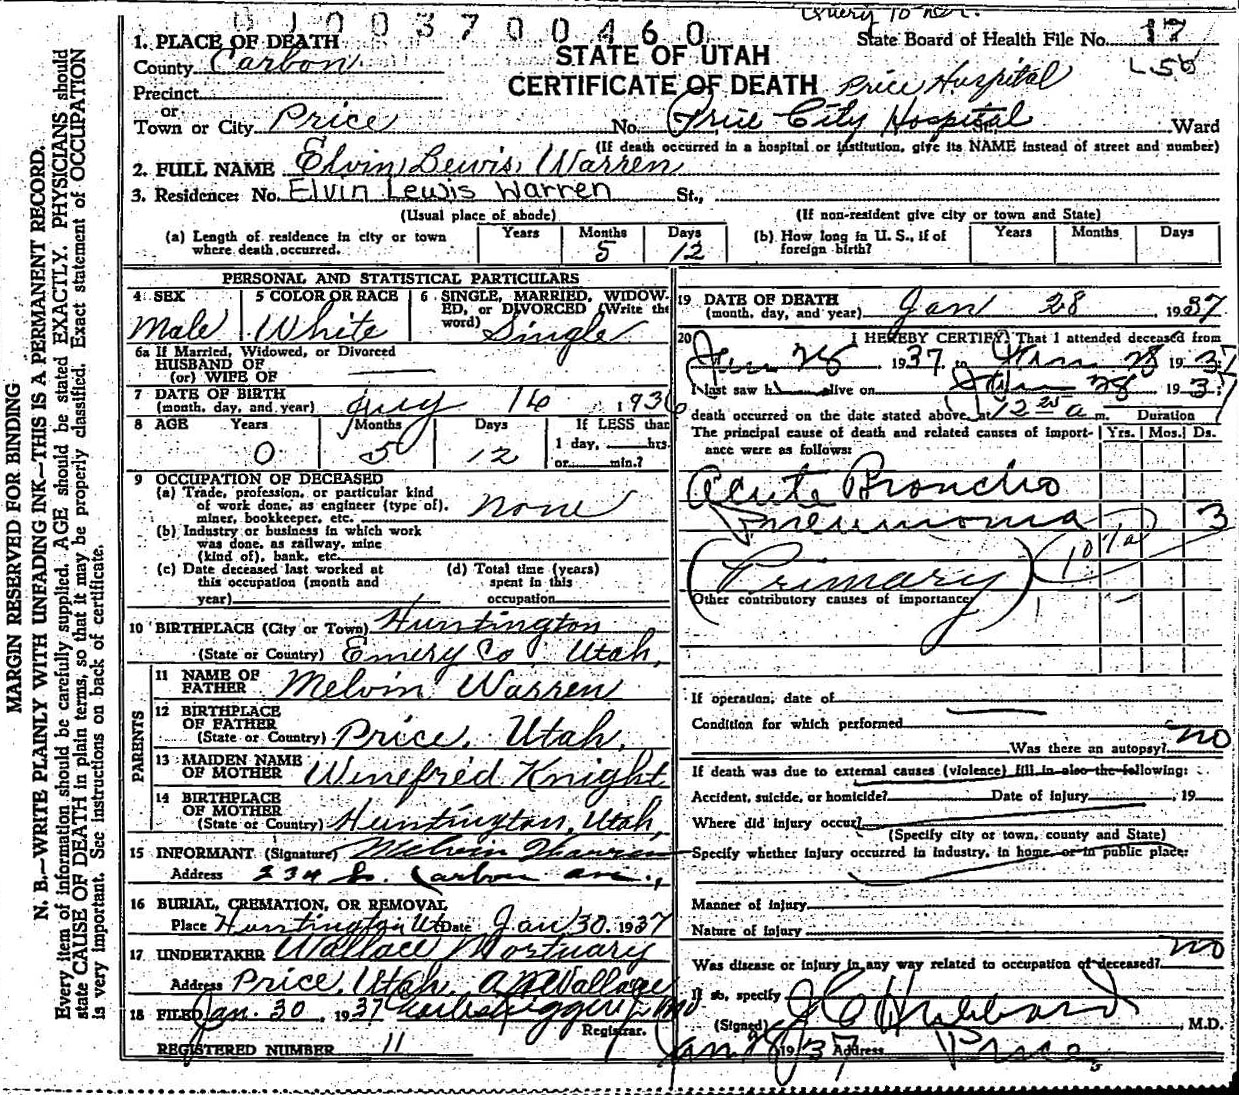 010037 00460
Query to ner.
1. PLACE OF DEATH
STATE OF UTAH
State Board of Health File No. 17
County Carbon
CERTIFICATE OF DEATH Price Hospital
Precinct
or
Town or City Price No. Price City Hospital St. Ward
(If death occurred in a hospital or institution, give its NAME instead of street and number)
2. FULL NAME Elvin Lewis Warren
3. Residence: No. Elvin Lewis Warren St.,
(Usual place of abode) (If non-resident give city or town and State)
(a) Length of residence in city or town where death occurred. Years Months 5 Days 12
(b) How long in U. S., if of foreign birth? Years Months Days
PERSONAL AND STATISTICAL PARTICULARS
4 SEX Male
5 COLOR OR RACE White
6 SINGLE, MARRIED, WIDOWED, or DIVORCED (Write the word) Single
6a If Married, Widowed, or Divorced
HUSBAND OF
(or) WIFE OF
7 DATE OF BIRTH
(month, day, and year) July 16 1936
8 AGE Years 0 Months 5 Days 12
If LESS than
1 day, hrs.
or min.?
9 OCCUPATION OF DECEASED
(a) Trade, profession, or particular kind
of work done, as engineer (type of),
miner, bookkeeper, etc. none
(b) Industry or business in which work
was done, as railway, mine
(kind of), bank, etc.
(c) Date deceased last worked at
this occupation (month and
year)
(d) Total time (years)
spent in this
occupation
10 BIRTHPLACE (City or Town) Huntington
(State or Country) Emery Co Utah,
PARENTS
11 NAME OF
FATHER Melvin Warren
12 BIRTHPLACE
OF FATHER
(State or Country) Price, Utah,
13 MAIDEN NAME
OF MOTHER Winefred Knight
14 BIRTHPLACE
OF MOTHER
(State or Country) Huntington, Utah,
15 INFORMANT (Signature) Melvin Warren
Address 234 So. Carbon ave.,
16 BURIAL, CREMATION, OR REMOVAL
Place Huntington Ut Date Jan 30 1937
17 UNDERTAKER Wallace Mortuary
Address Price, Utah. A M Wallace
18 FILED Jan. 30, 1937
Registrar.
REGISTERED NUMBER 11
19 DATE OF DEATH
(month, day, and year) Jan 28 1937
20 I HEREBY CERTIFY, That I attended deceased from
Jan 28 1937, to Jan 28 1937
I last saw h alive on Jan 28 1937
death occurred on the date stated above, at 12 25 a m. Duration
The principal cause of death and related causes of importance were as follows: Yrs. Mos. Ds.
Acute Broncho
Pneumonia 3
(Primary) 107a
Other contributory causes of importance:
If operation, date of
Condition for which performed
Was there an autopsy? no
If death was due to external causes (violence) fill in also the following:
Accident, suicide, or homicide? Date of injury , 19
Where did injury occur?
(Specify city or town, county and State)
Specify whether injury occurred in industry, in home, or in public place:
Manner of injury
Nature of injury
Was disease or injury in any way related to occupation of deceased? no
If so, specify
(Signed) J C Hubbard, M.D.
Jan 28 1937 Address Price
MARGIN RESERVED FOR BINDING
N. B.—WRITE PLAINLY WITH UNFADING INK—THIS IS A PERMANENT RECORD.
Every item of information should be carefully supplied. AGE should be stated EXACTLY. PHYSICIANS should
state CAUSE OF DEATH in plain terms, so that it may be properly classified. Exact statement of OCCUPATION
is very important. See instructions on back of certificate.